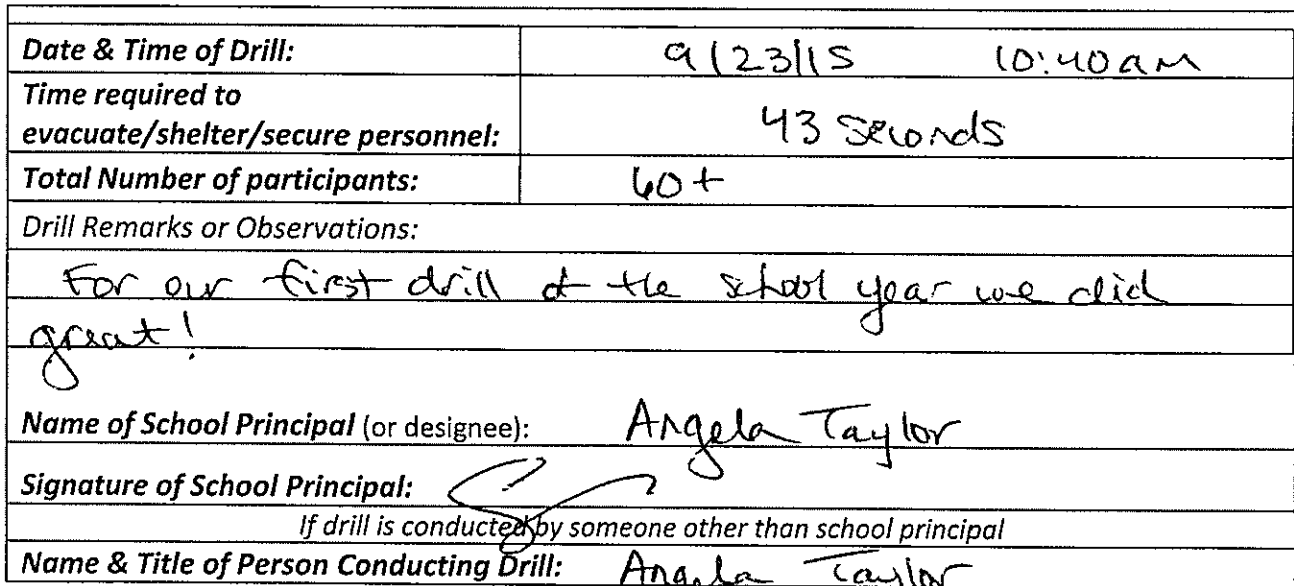 Date & Time of Drill: 9/23/15 10:40am
Time required to
evacuate/shelter/secure personnel: 43 seconds
Total Number of participants: 60+
Drill Remarks or Observations:
For our first drill of the school year we did
great!
Name of School Principal (or designee): Angela Taylor
Signature of School Principal:
If drill is conducted by someone other than school principal
Name & Title of Person Conducting Drill: Angela Taylor